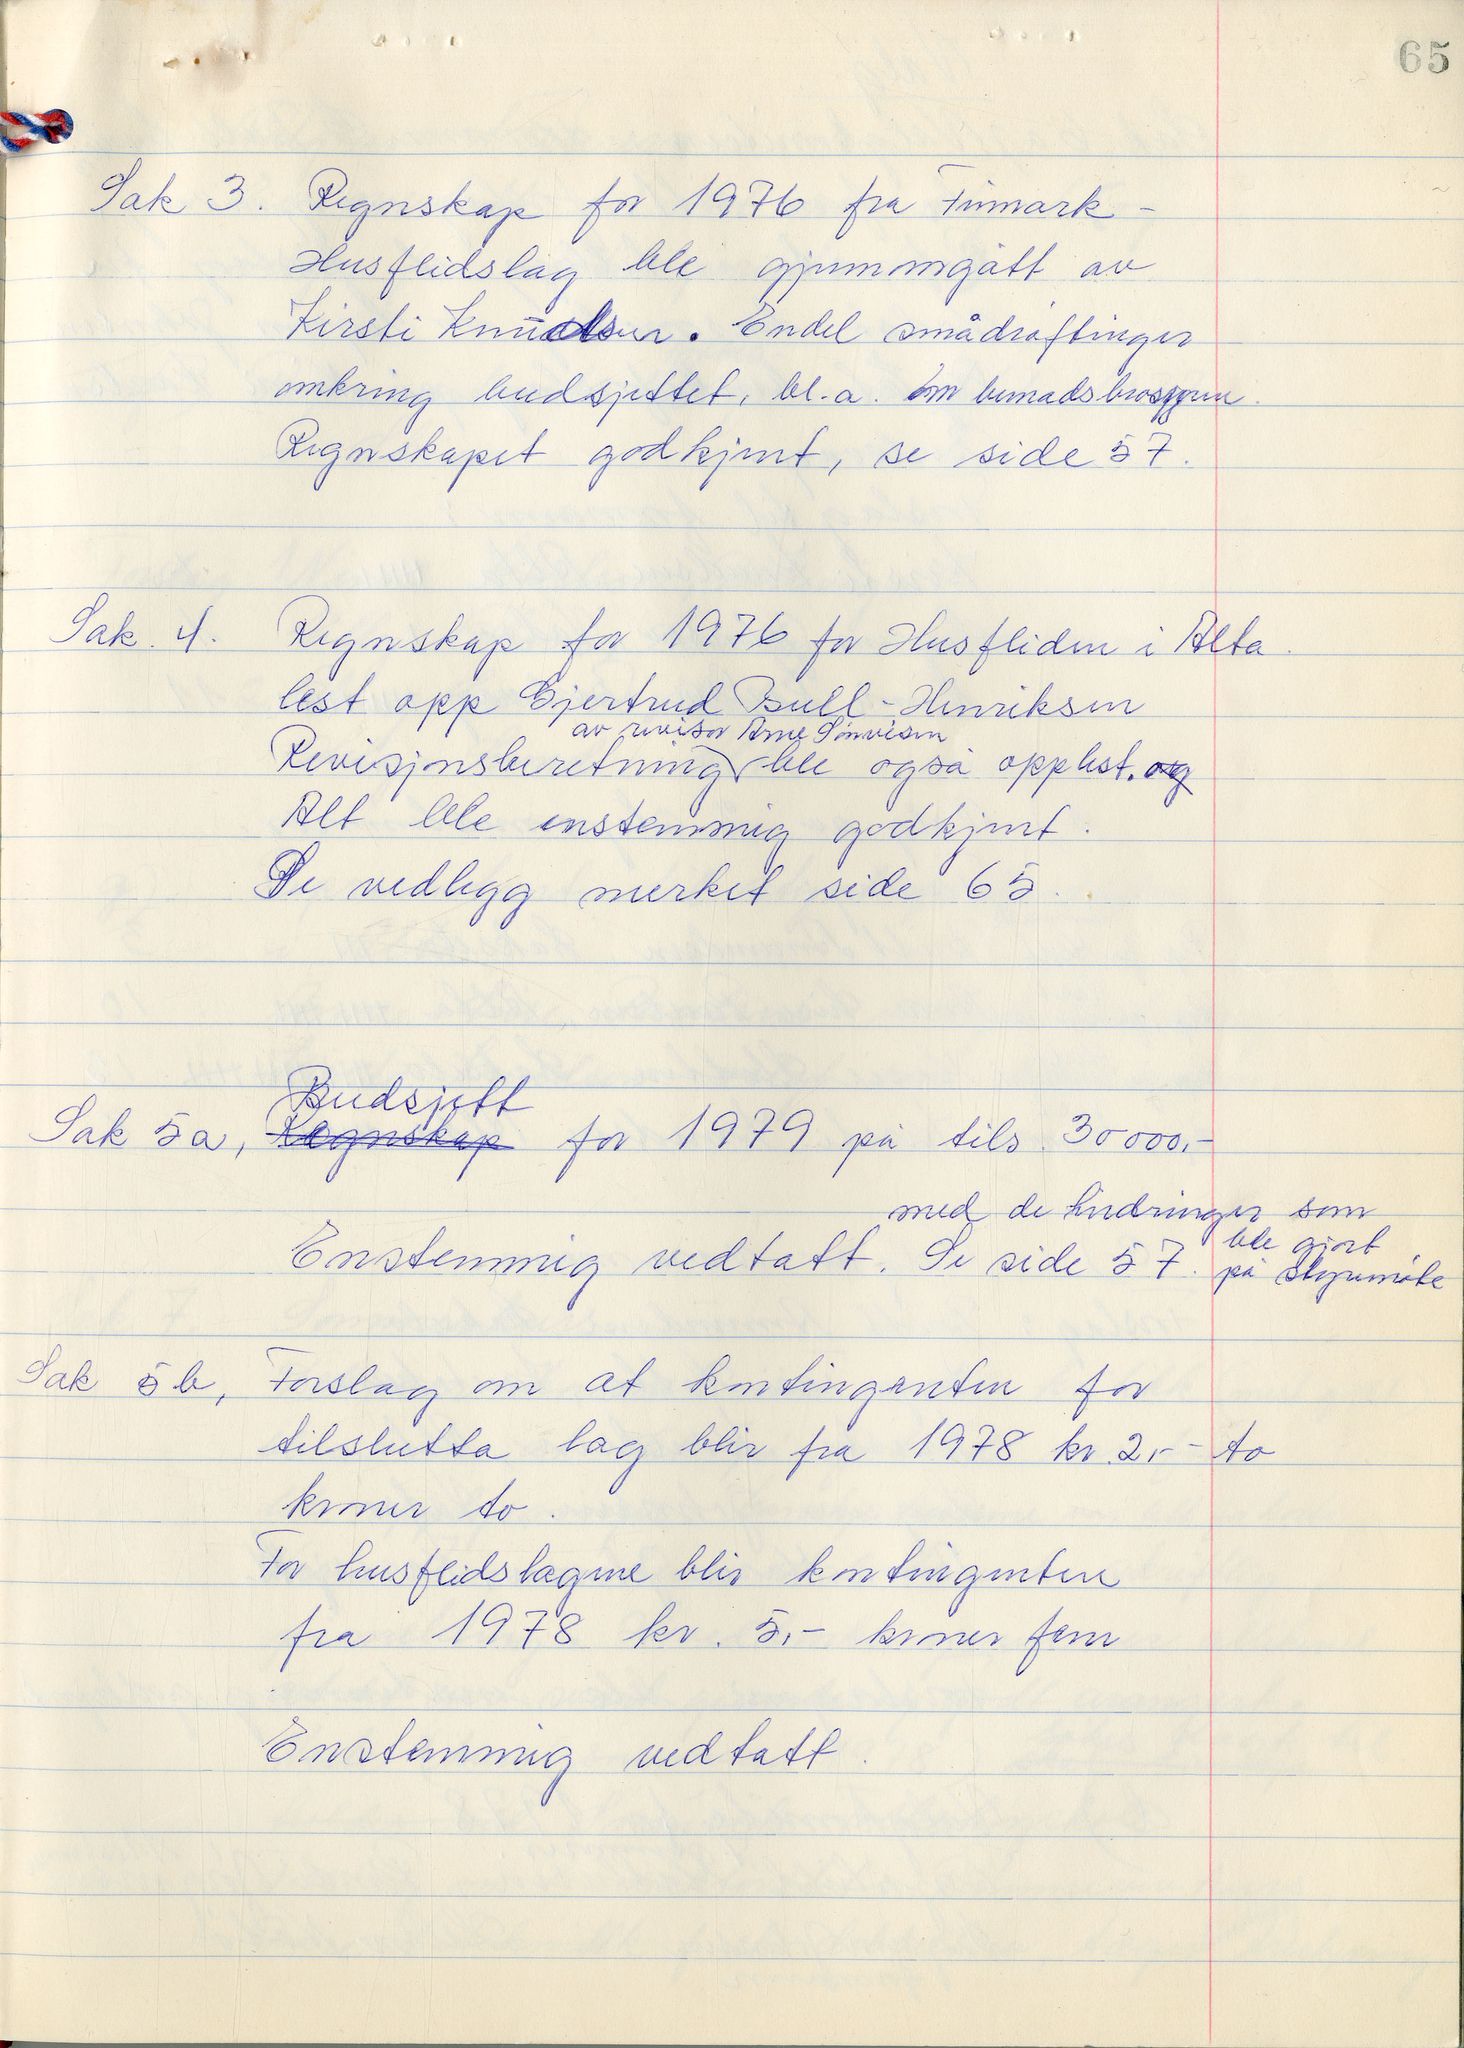 65
Sak 3. Regnskap for 1976 fra Finmark-
Husflidslag ble gjennomgått av
Kirsti Knudsen. Endel smådrøftinger
omkring budsjettet, bl.a. om
Regnskapet godkjent, se side 57.
Sak. 4. Regnskap for 1976 for Husfliden i Alta.
lest opp Gjertrud Bull-Henriksen
av revisor Arne
Revisjonsberetning ble også opplest. og
Alt ble enstemmig godkjent.
Se vedlegg merket side 65.
Budsjett
Sak 5a, Regnskap for 1979 på tils. 30000,-
med de endringer som
ble gjort
Enstemmig vedtatt. Se side 57. på styremøte
Sak 5b, Forslag om at kontingenten for
tilslutta lag blir fra 1978 kr. 2,- to
kroner to.
For husflidslagene blir kontingenten
fra 1978 kr. 5,- kroner fem
Enstemmig vedtatt.